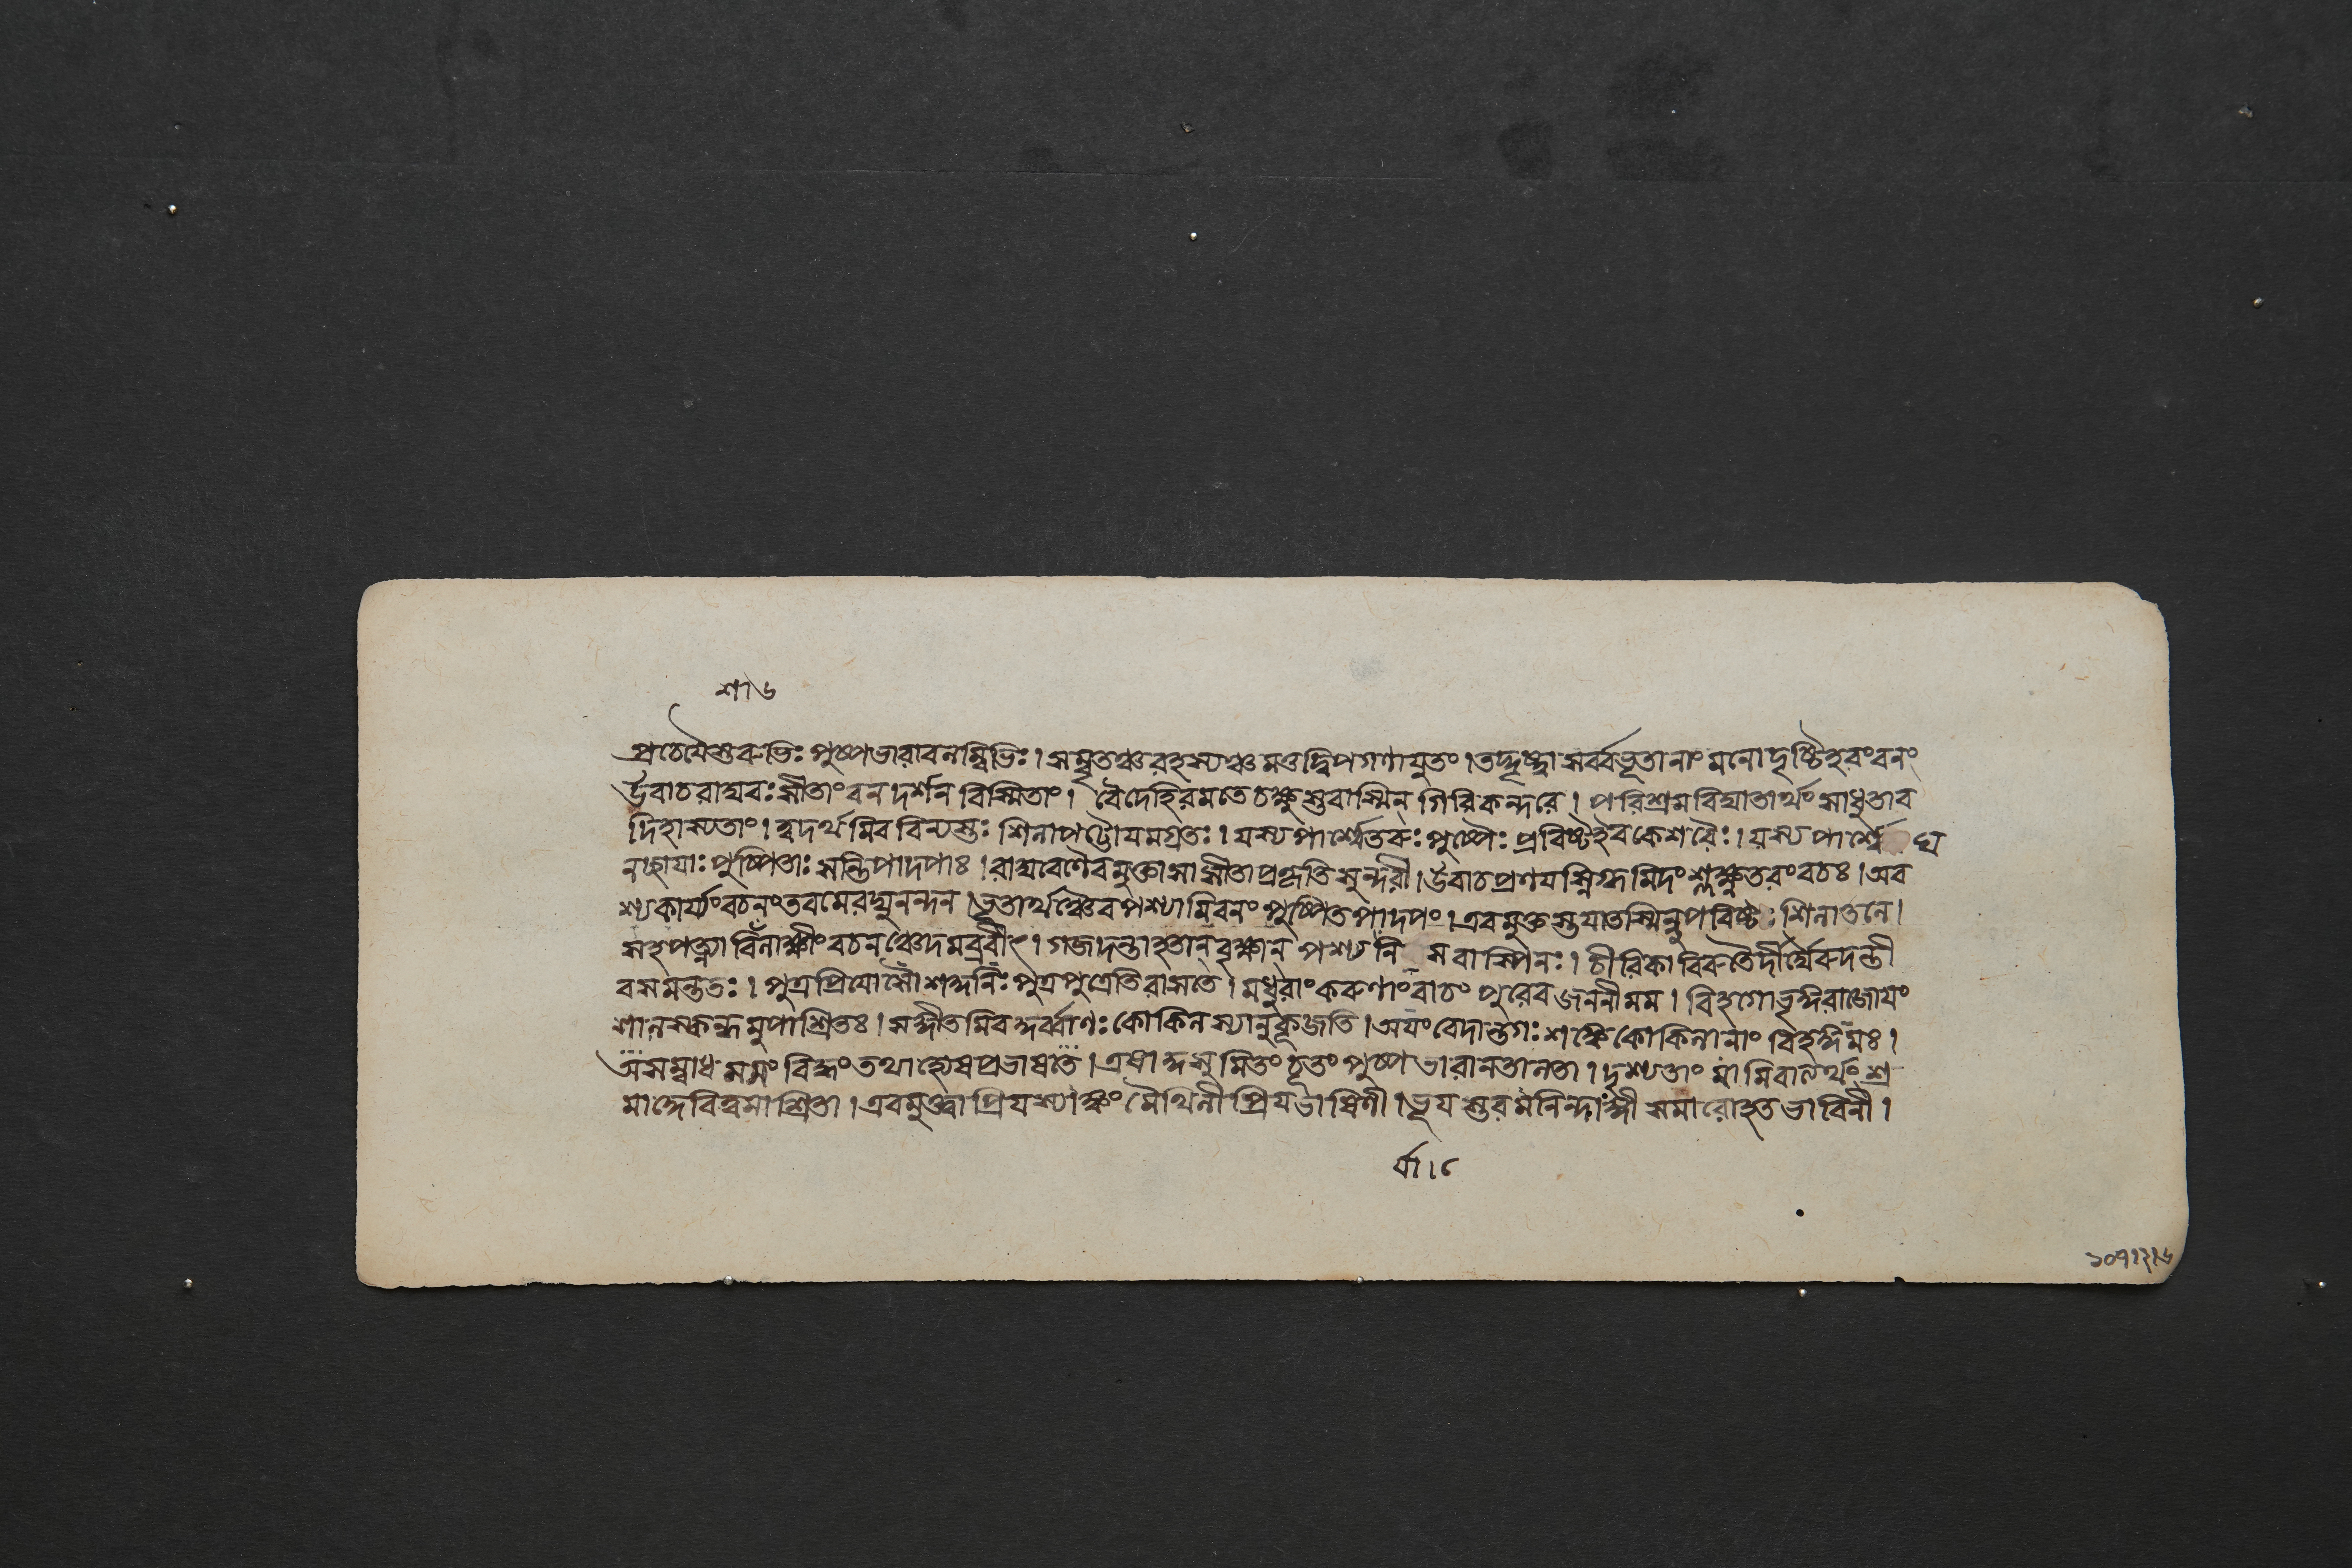 শা৬
প্রচেযৈস্তরুভিঃ পুষ্পভারাবলম্বিভিঃ। সম্বৃতঞ্চ রহস্যঞ্চ মত্তদ্বিপগণাযুতং। তদ্দৃষ্ট্বা সর্ব্বভূতানাং মনোদৃষ্টিহরং বনং
উবাচ রাঘবঃ সীতাং বনদর্শনবিস্মিতাং। বৈদেহি রমতে চক্ষুস্তবাস্মিন্ গিরিকন্দরে। পরিশ্রমবিঘাতার্থং সাধু তাব
দিহাস্যতাং। ত্বদর্থমিব বিন্যস্তঃ শিলাপট্টোযমগ্রতঃ। যস্য পার্শ্বে তরুঃ পুষ্পৈঃ প্রবিষ্ট ইব কেশরৈঃ। যস্য পার্শ্বে ঘ
নছাযাঃ পুষ্পিতাঃ সন্তি পাদপাঃ। রাঘবেণৈবমুক্তা সা সীতা প্রকৃতিসুন্দরী। উবাচ প্রণযস্নিগ্ধমিদং শ্লক্ষ্ণতরং বচঃ। অব
শ্যকার্য্যং বচনং তব মে রঘুনন্দন। ভূতার্থঞ্চৈব পশ্যামি বনং পুষ্পিতপাদপং। এবমুক্তস্তযা তস্মিন্নুপবিষ্টঃ শিলাতলে।
সহ পত্ন্যা বিশালাক্ষীং বচনঞ্চেদমব্রবীৎ। গজদন্তাহতান্ বৃক্ষান্ পশ্য নি সবাস্পিনঃ। চীরিকাবিরুতৈর্দীর্ঘৈরুদন্তী
ব সমন্ততঃ। পুত্রপ্রিযোসৌ শকুনিঃ পুত্র পুত্রেতি রাসতে। মধুরাং করুণাং বাচং পুরেব জননী মম। বিহগো ভৃঙ্গরাজোযং
শালস্কন্ধমুপাশ্রিতঃ। সঙ্গীতমিব কুর্ব্বাণঃ কোকিলস্যানুকূজতি। অযং বেদান্তগঃ শঙ্কে কোকিলানাং বিহঙ্গমঃ।
অসম্বাধমমং বিহ্বং তথা হ্যেষ প্রভাষতে। এষা কুসুমিতং চূতং পুষ্পভারানতা লতা। দৃশ্যতাং মামিবাত্যর্থং শ্র
মাদ্দেবি ত্বমাশ্রিতা। এবমুক্ত্বা প্রিযস্যাঙ্কং মৈথিলী প্রিযভাষিণী। ভূযস্তরমনিন্দাঙ্গী সমারোহত ভাবিনী।
র্বা।৫
১০৭।২।৬